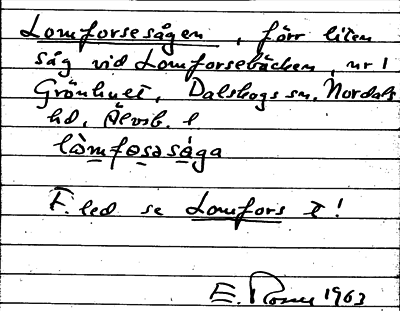 Lomforsesågen, förr liten
såg vid Lomforsebäcken, nr 1
Grönhult, Dalskogs sn. Nordals
hd. Älvsb. l
låmfosasåga
F. led se Lomfors t!
E. Rosen 1963